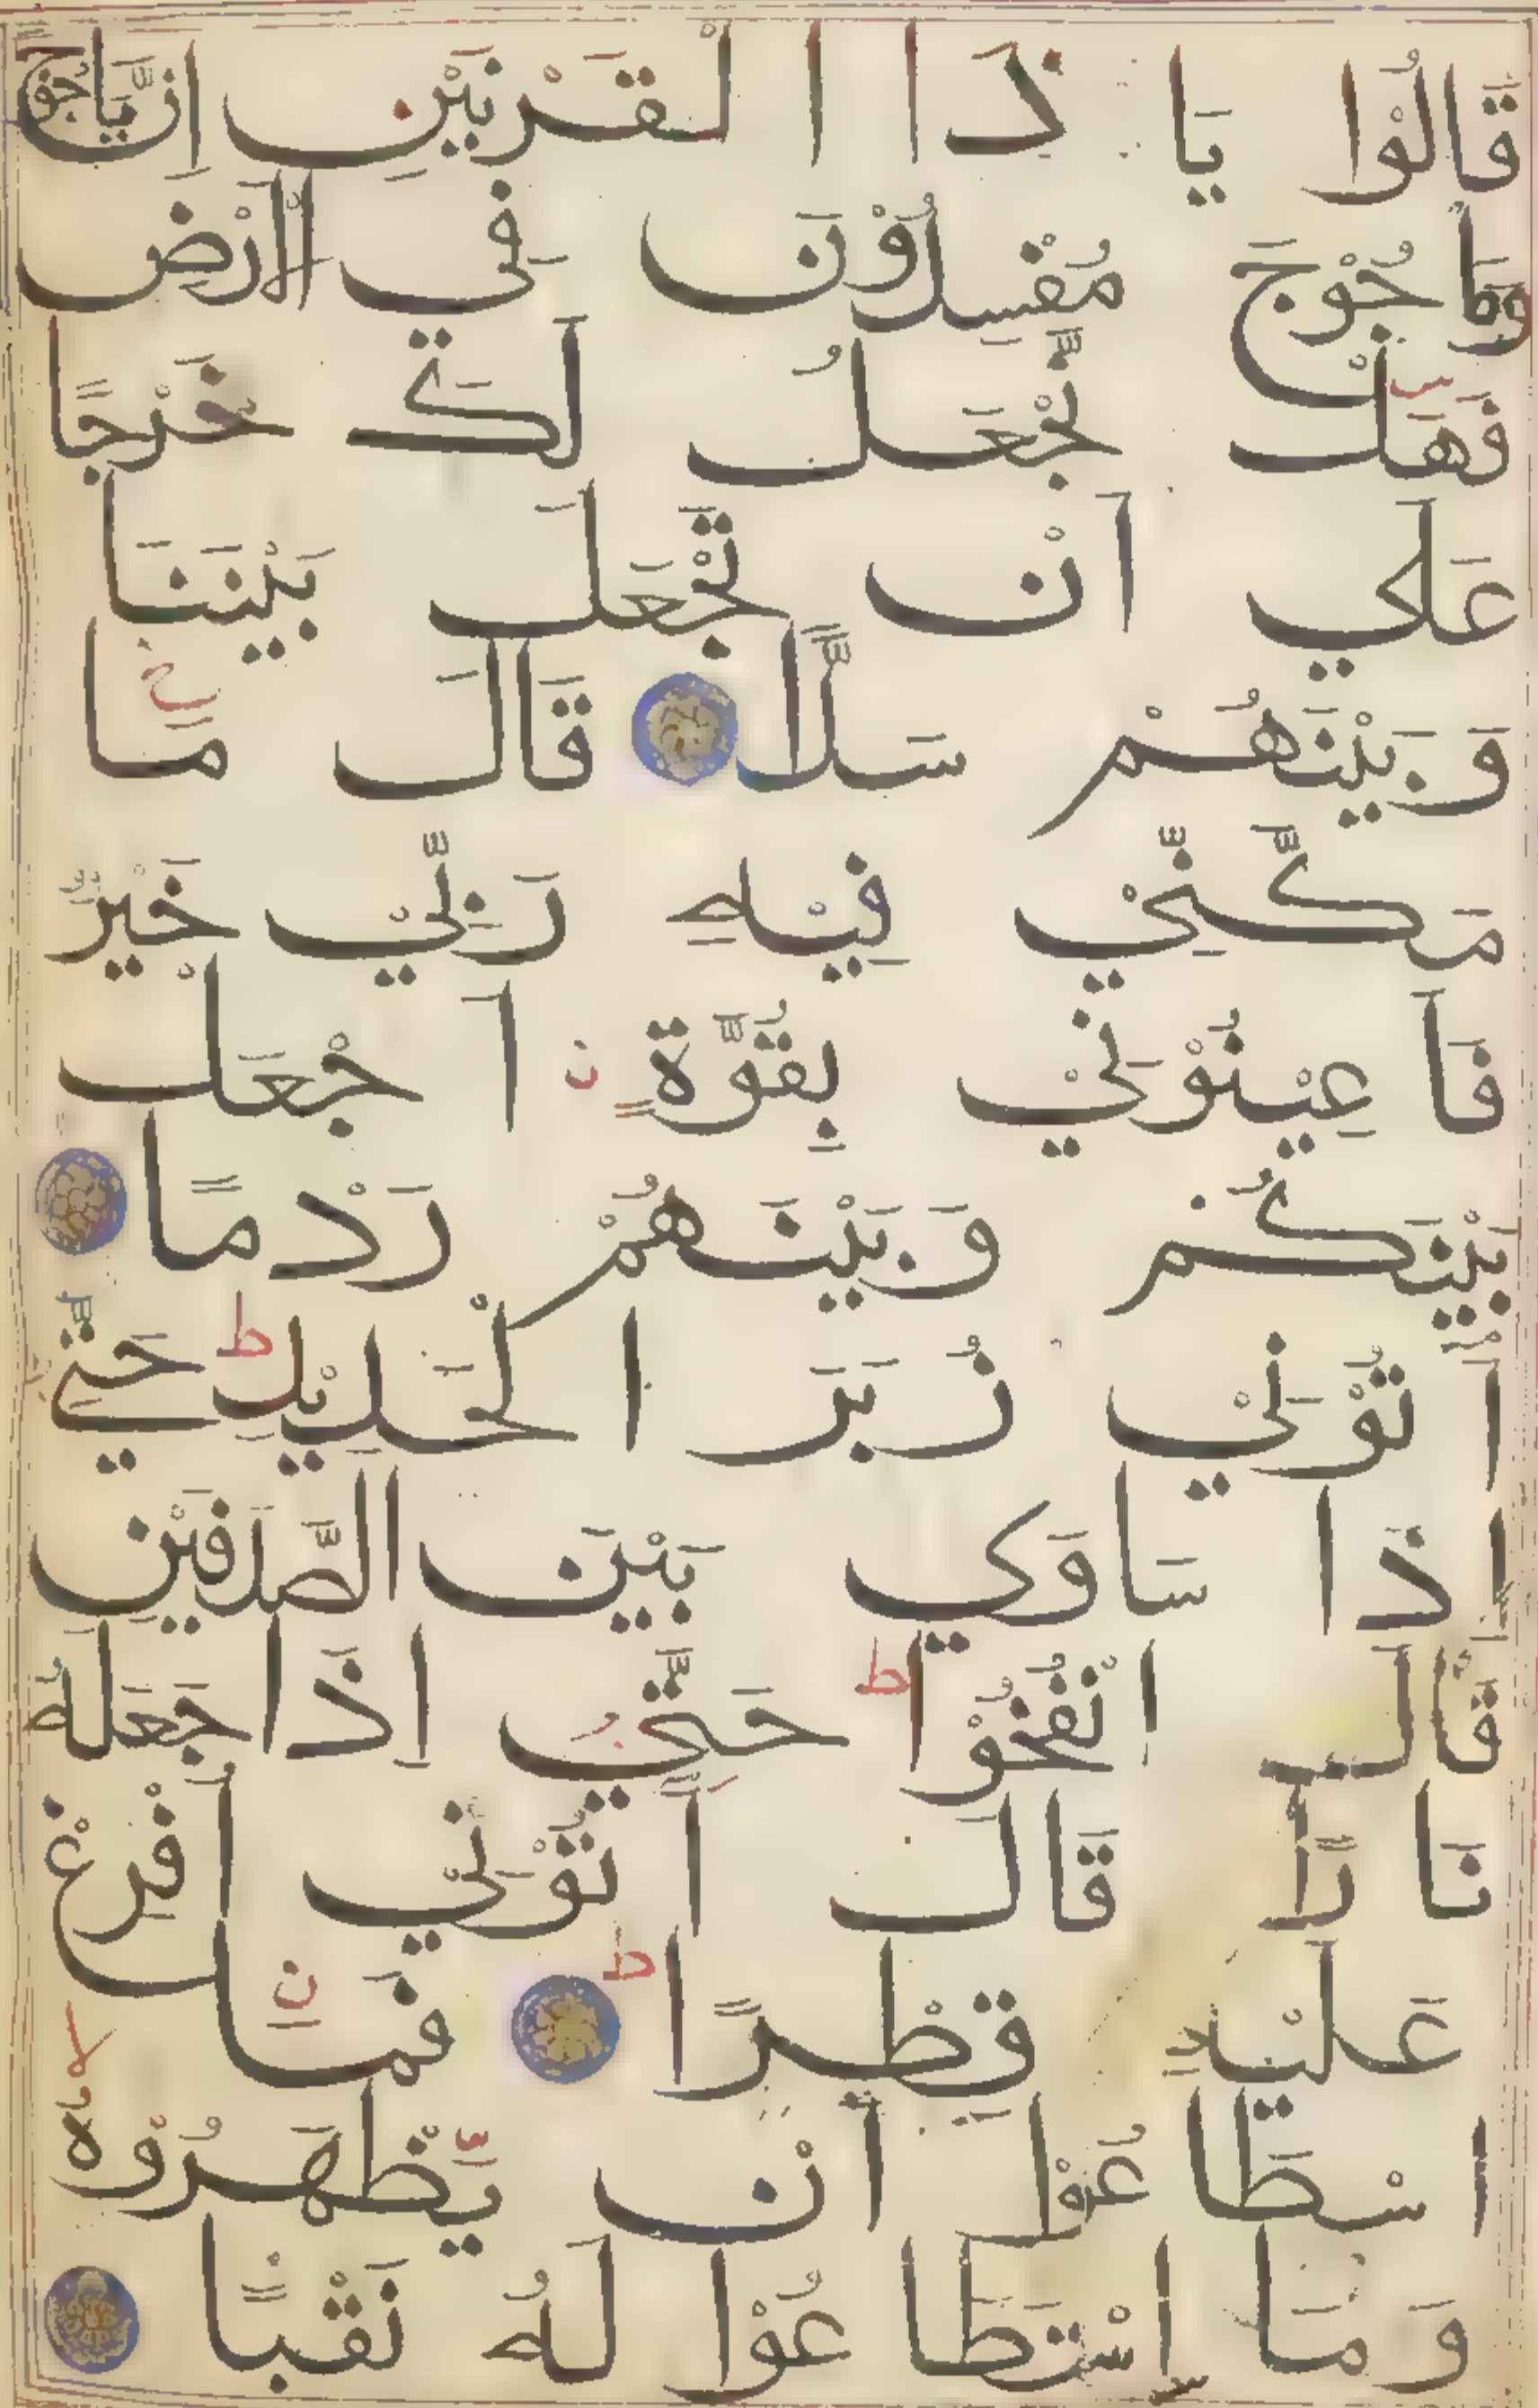 قَالُوْا يَا ذَا الْقَرْنَيْنِ اِنَّ يَاجُوْجَ
وَمَاجُوْجَ مُفْسِدُوْنَ فِي الْاَرْضِ
فَهَلْ نَجْعَلُ لَكَ خَرْجًا
عَلٰي اَنْ تَجْعَلَ بَيْنَنَا
وَبَيْنَهُمْ سَدًّا قَالَ مَا
مَكَّنِّيْ فِيْهِ رَبِّيْ خَيْرٌ
فَاَعِيْنُوْنِيْ بِقُوَّةٍ اَجْعَلْ
بَيْنَكُمْ وَبَيْنَهُمْ رَدْمًا
اٰتُوْنِيْ زُبَرَ الْحَدِيْدِ ط حَتّٰي
اِذَا سَاوٰي بَيْنَ الصَّدَفَيْنِ
قَالَ انْفُخُوْا ط حَتّٰي اِذَا جَعَلَهُ
نَارًا قَالَ اٰتُوْنِيْ اُفْرِغْ
عَلَيْهِ قِطْرًا ط فَمَا
اسْطَاعُوْا اَنْ يَّظْهَرُوْهُ
وَمَا اسْتَطَاعُوْا لَهُ نَقْبًا